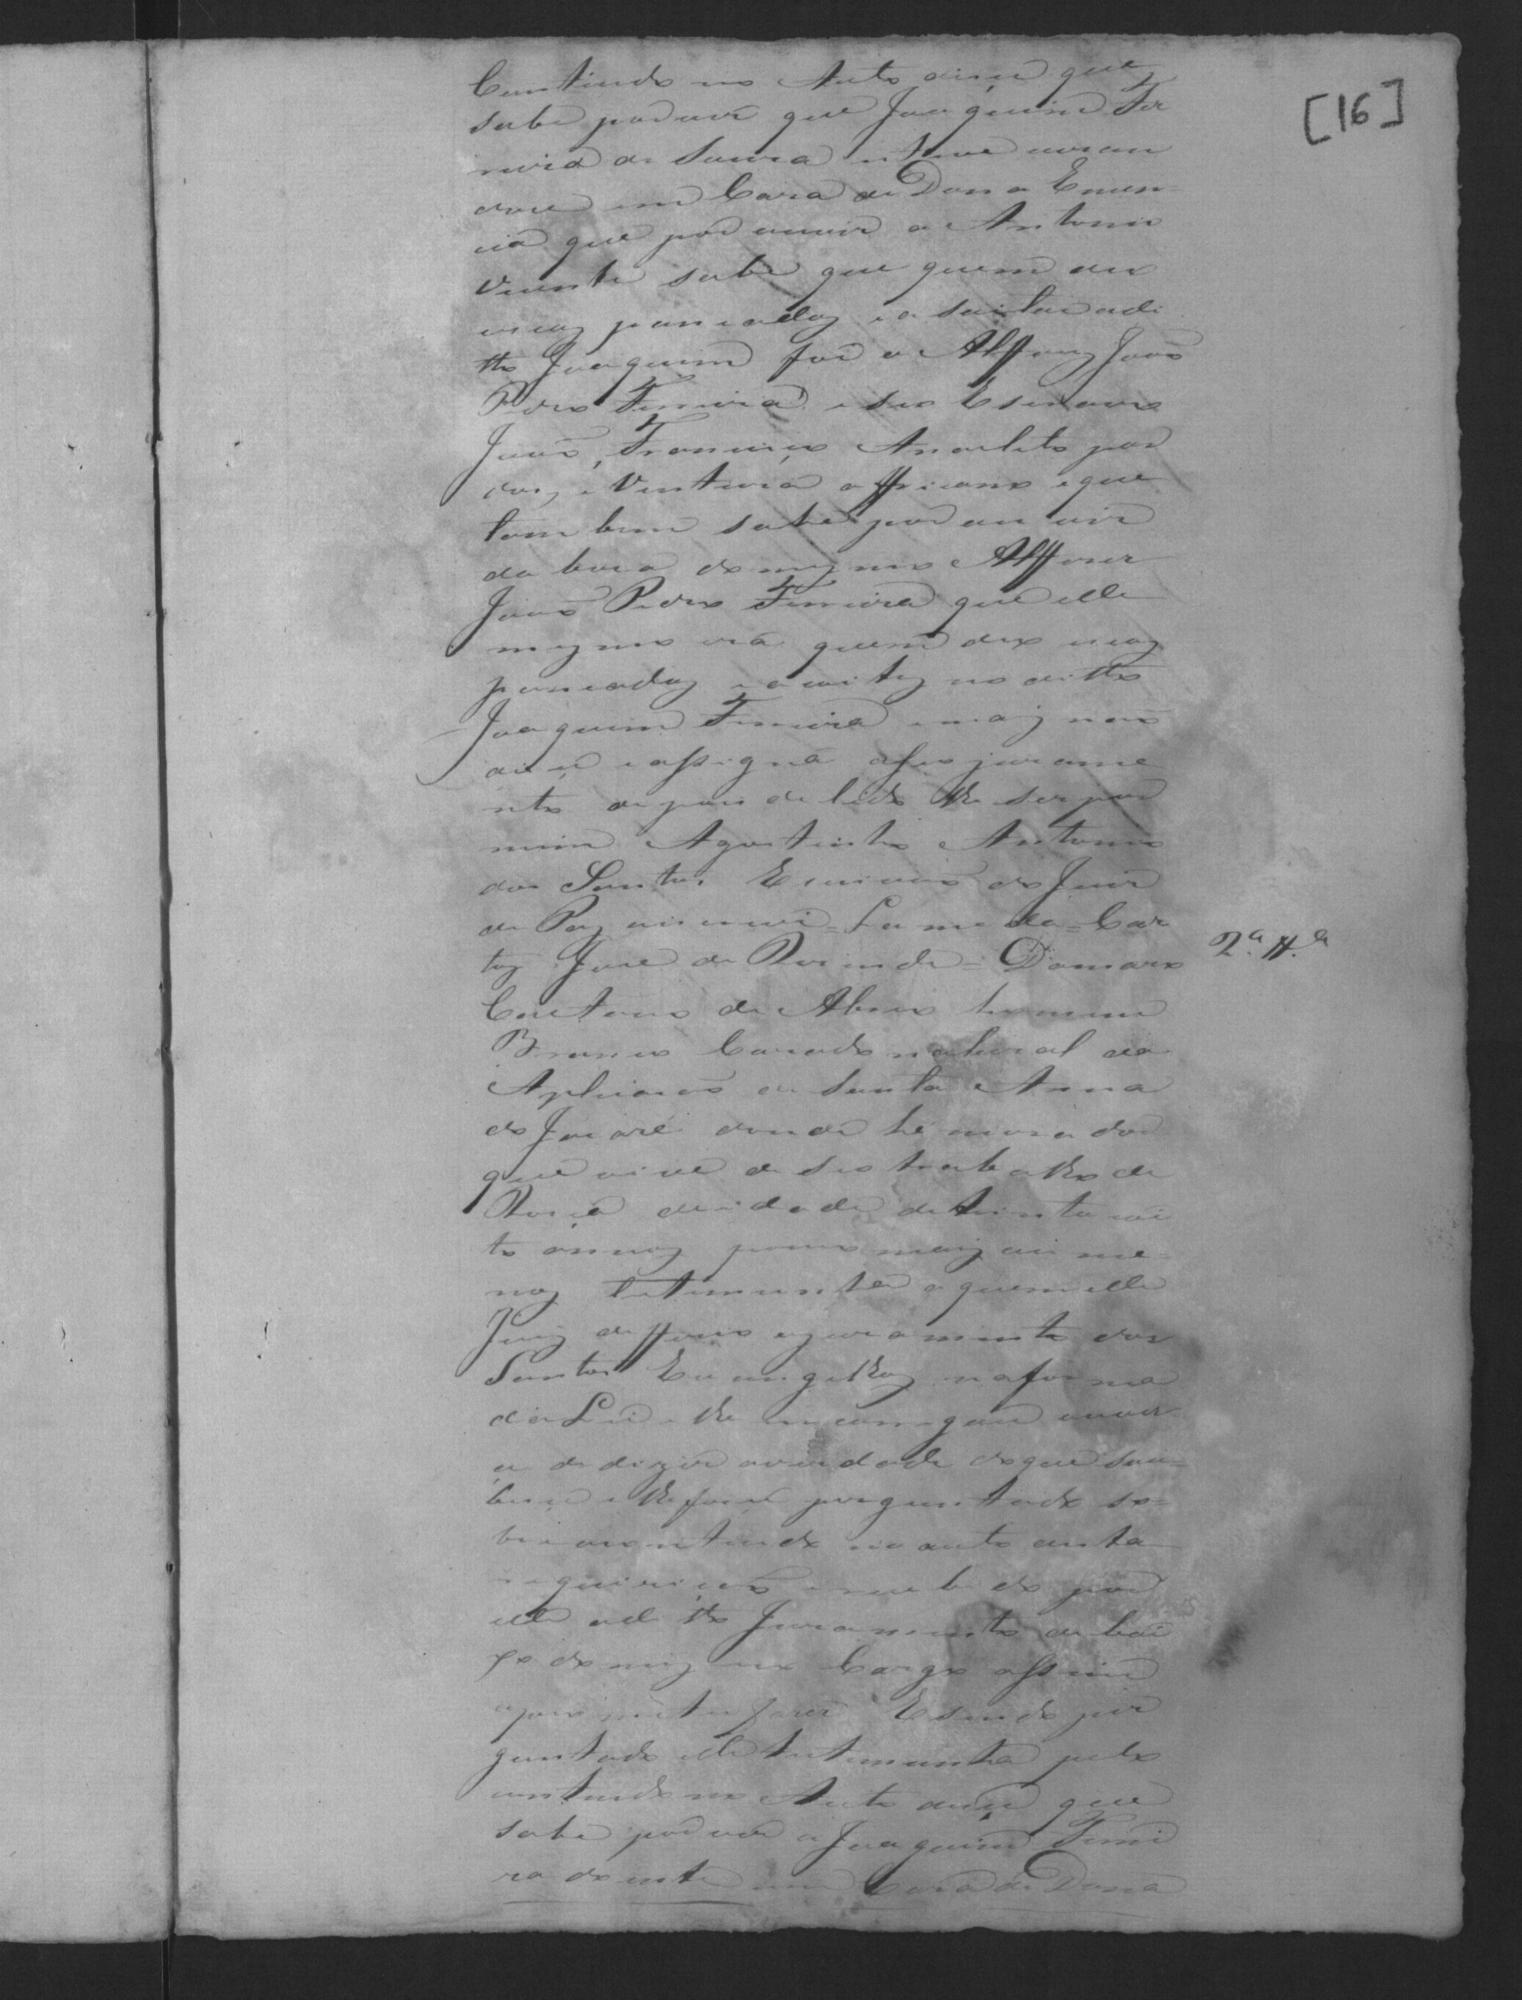 [16]
Contiudo no Auto disse que
sabe por ver que Joaquim Fer
reira de Souza esteve
em Casa de Dona
que por ouvir a Antonio
Vicente sabe que quem deu
pancadas
tto Joaquim foi o Alfferes João
Pedro Ferreira e seo Escravo
João, Francisco Anacleto par
dos, e Ventura affricano e que
tambem sabe por ouvir
da boca do mesmo Alfferes
João Pedro Ferreira que elle
mesmo era quem deo
pancadas no ditto
Joaquim Ferreira e mais não
disse e assigna o seo jurame
nto depois de lido lhe ser por
mim Agostinho Antonio
dos Santos Escrivão do Juiz
de Paz
José de Rezende = Damazo
2.ª T.ª
Caetano de Abreo homem
Branco Cazado natural da
Aplicação de Santa Anna
do Jacaré donde he morador
que vive de seo trabalho de
Rossa de idade de trinta e oi
to annos pouco mais ou me-
nos testemunha a quem elle
Juiz defferio o juramento dos
Santos Evangelhos na forma
da Lei e lhe encarregou
de dizer a verdade do que sou-
besse e lhe fosse perguntado so-
bre o contiudo no auto desta
e recebido por
elle o ditto Juramento de bai
xo do mesmo Cargo assim
o prometeu fazer E sendo per
guntado elle testemunha pelo
contiudo no Auto disse que
sabe por ver a Joaquim Ferrei
ra doente em Caza de Dona